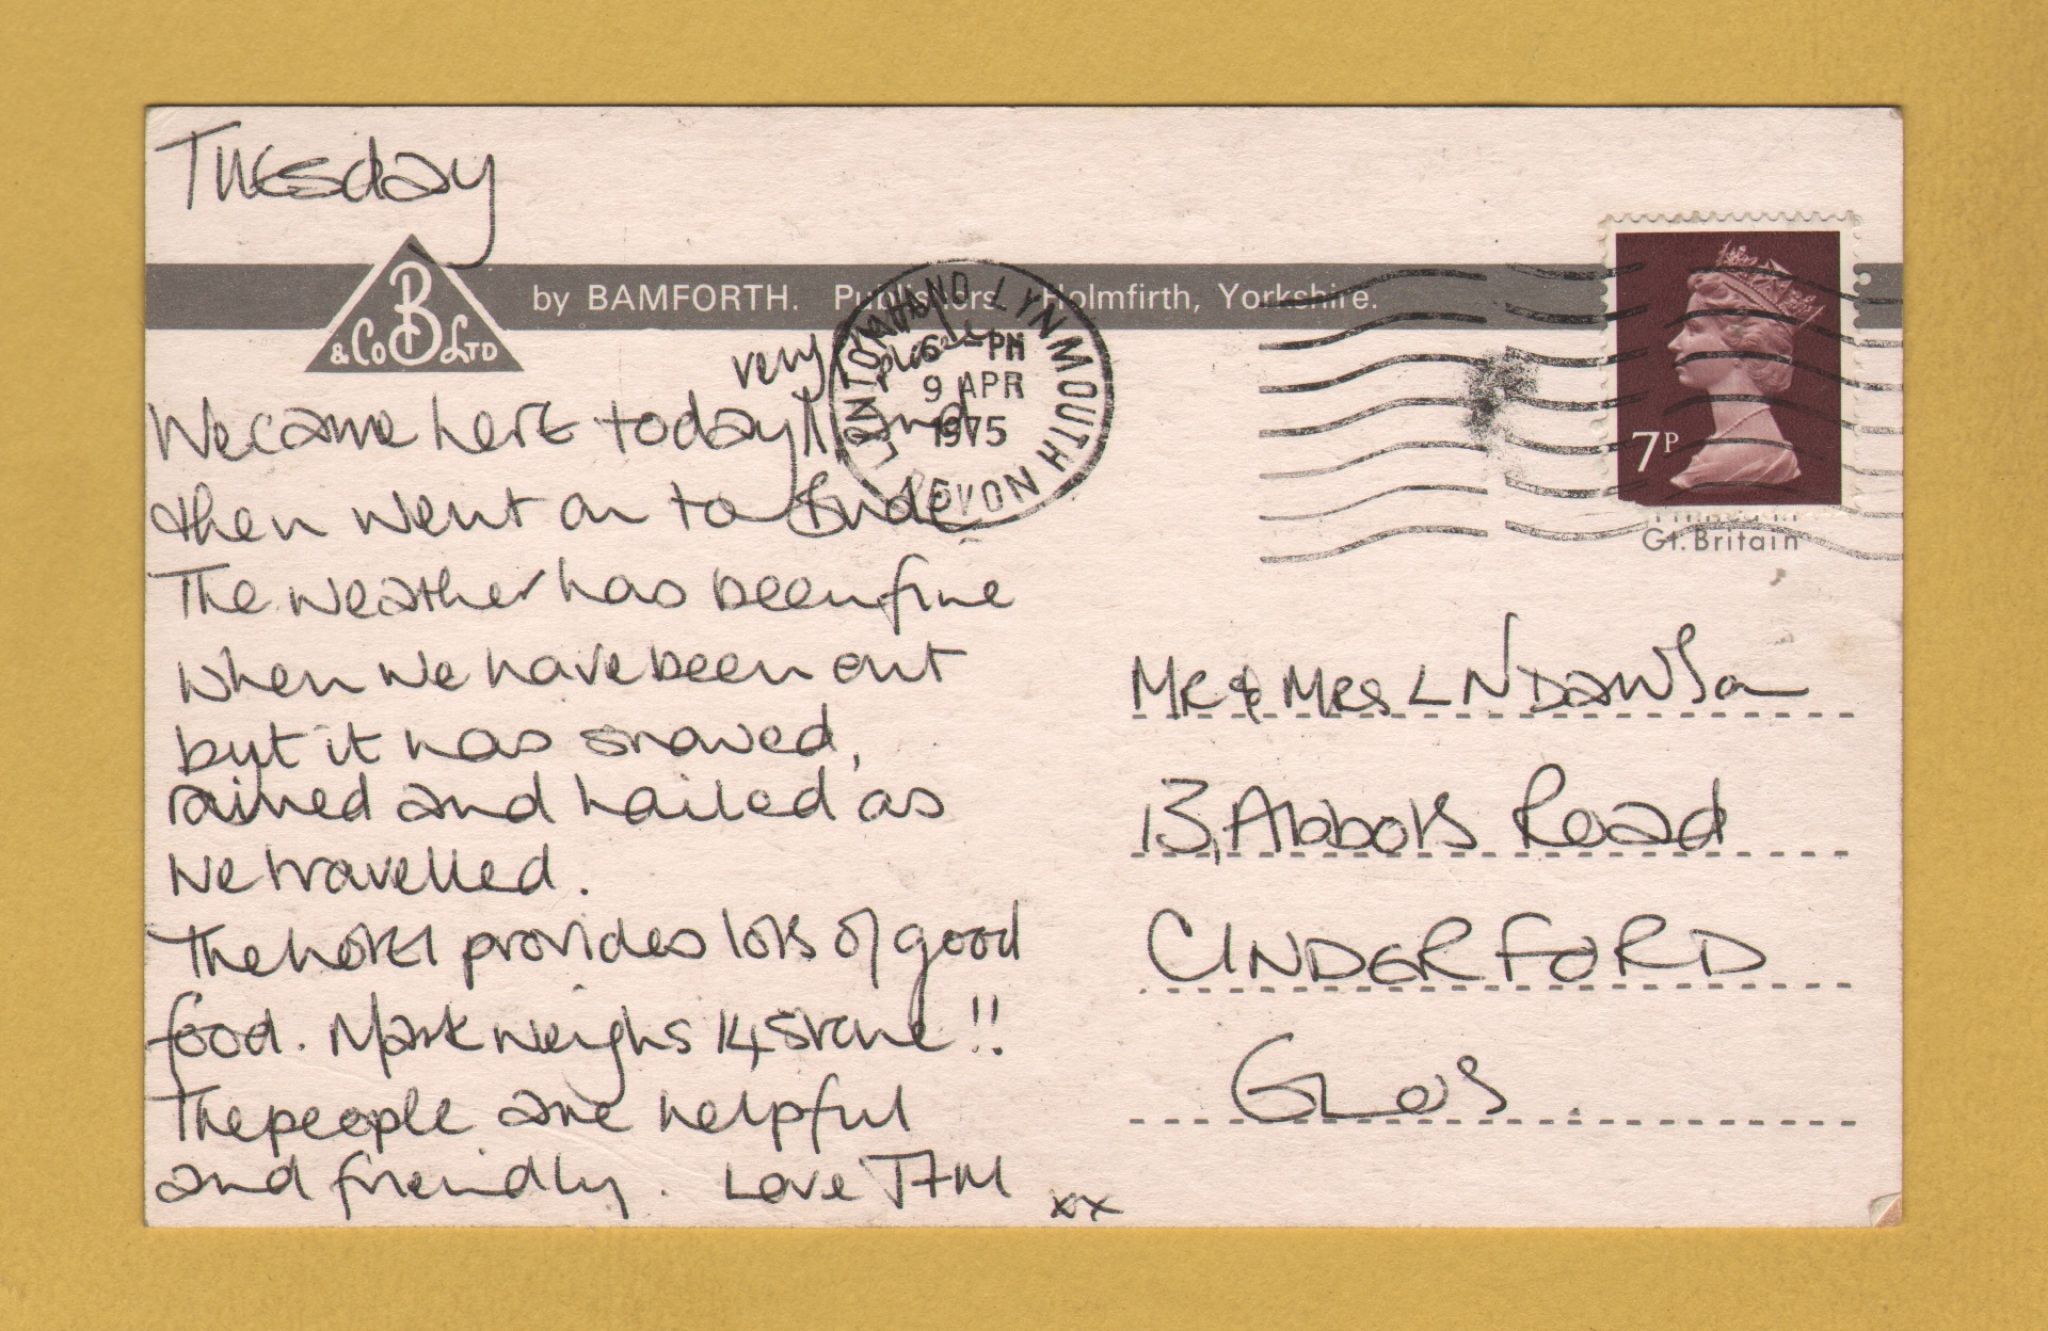 Tuesday
B
& Co LTD
by BAMFORTH. Publishers Holmfirth, Yorkshire.
very
place
We came here today and
then went on to Bude
The weather has been fine
when we have been out
but it has snowed,
rained and hailed as
we travelled.
The hotel provides lots of good
food. Mark weighs 14 stone!!
The people are helpful
and friendly. Love T+M
xx
LYNTON AND LYNMOUTH
6 PM
9 APR
1975
DEVON
7P
Gt. Britain
Mr & Mrs L N Dawson
13, Abbots Road
CINDERFORD
GLOS.